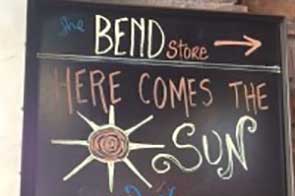 the BEND store
HERE COMES THE
SUN